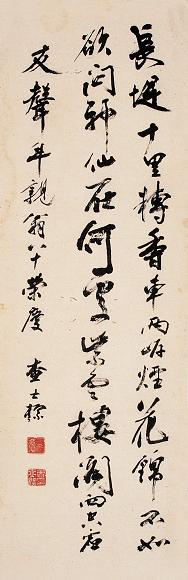 長堤十里轉香車兩岸煙花錦不如
欲問神仙在何處紫雲樓閣向空虛
友聲年親翁八十榮慶 查士標